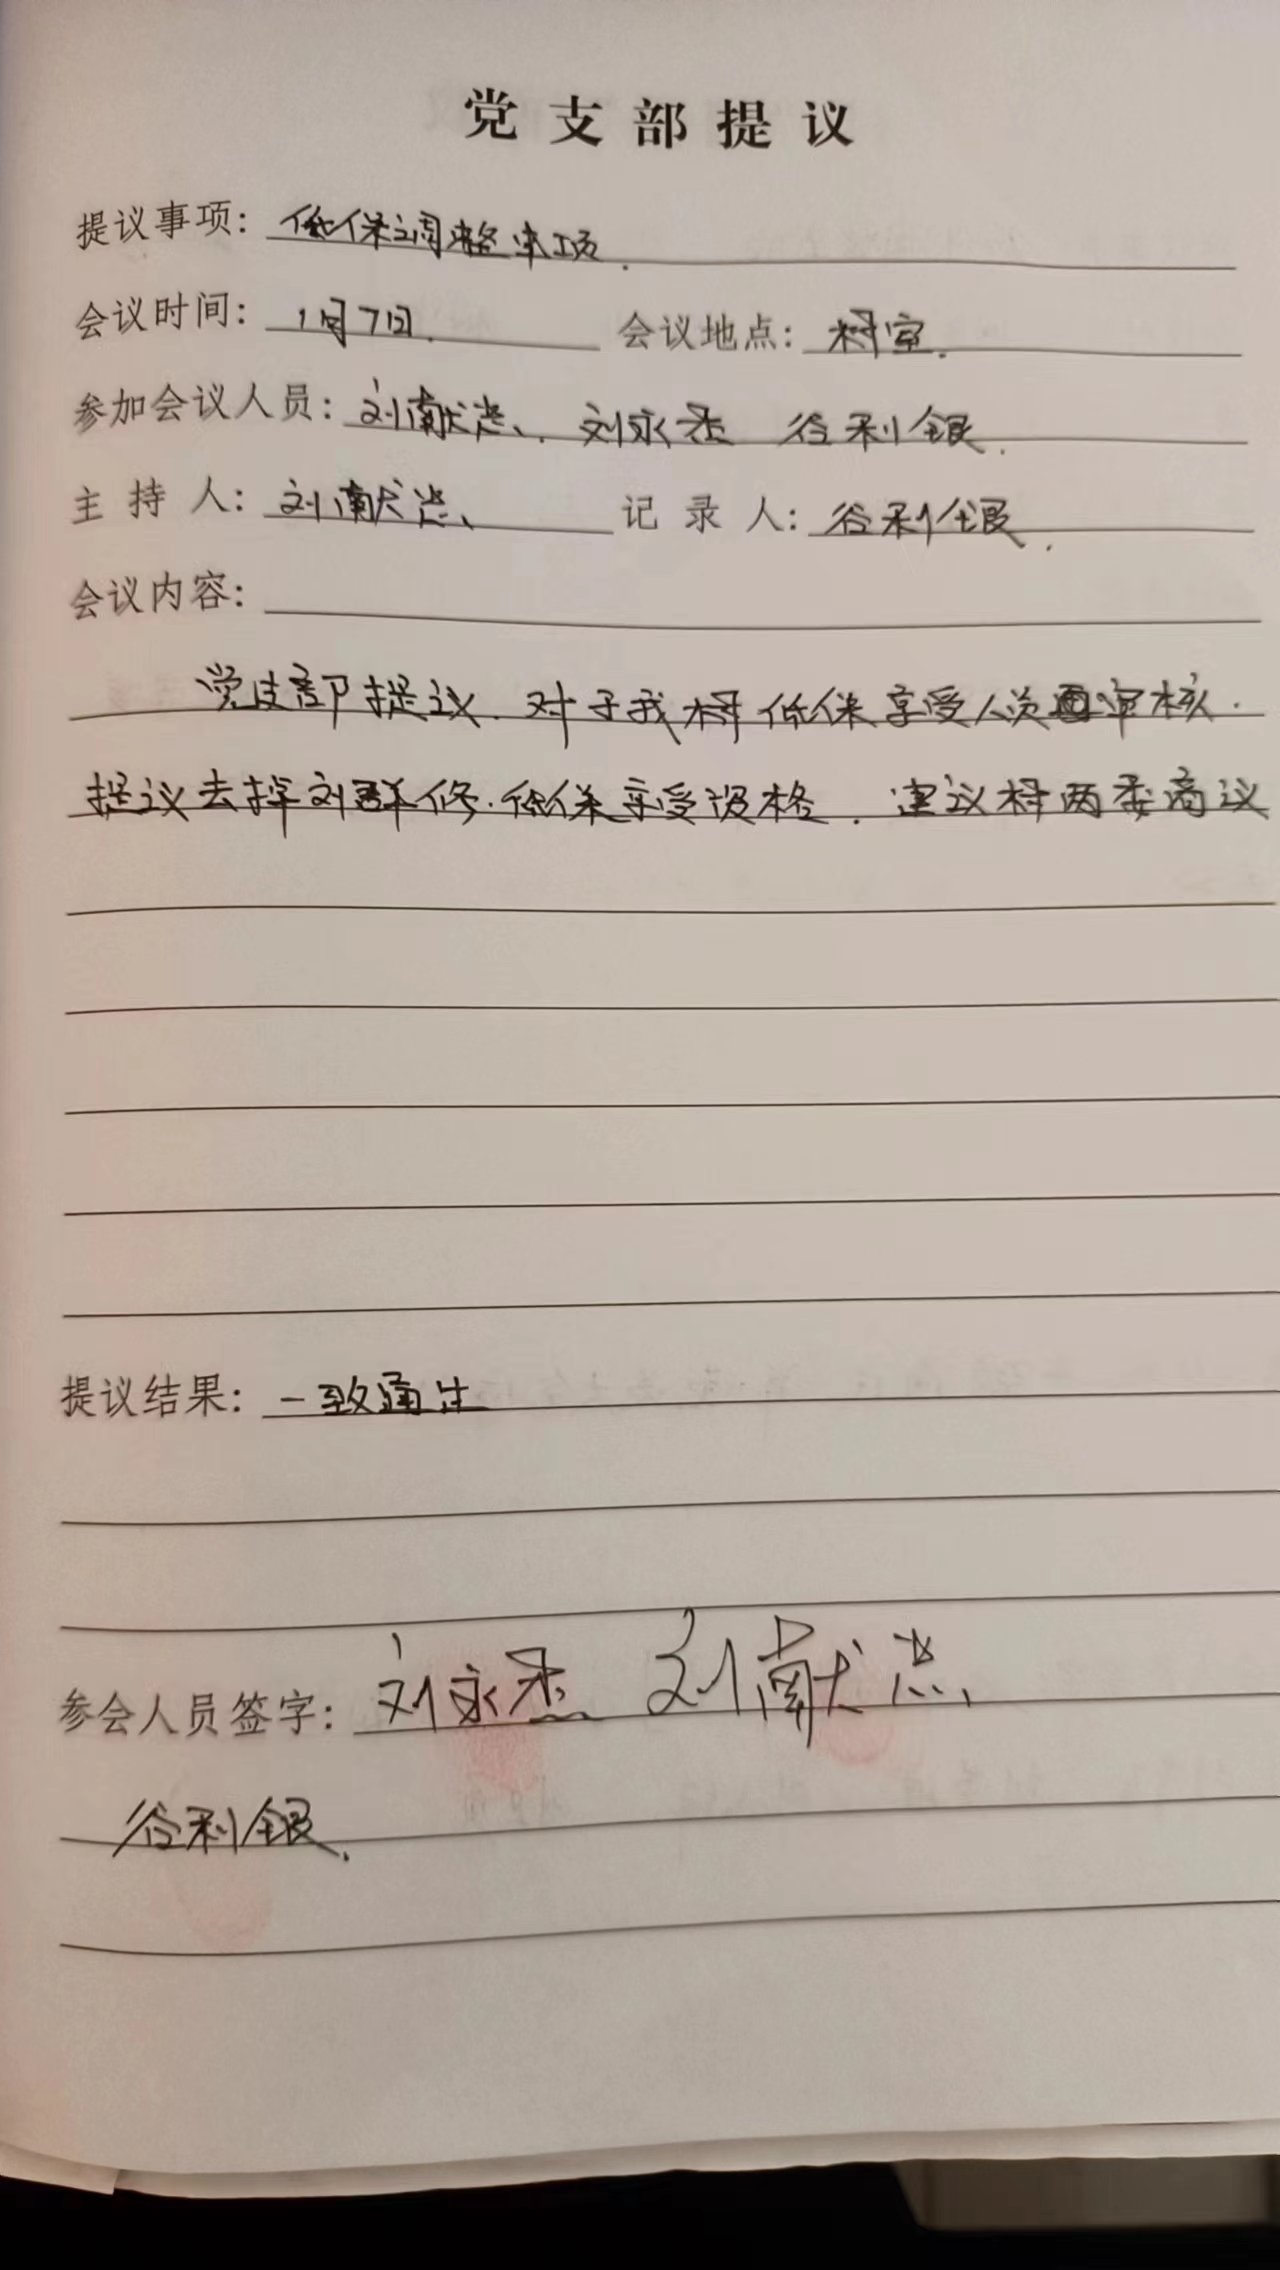 党支部提议
提议事项：低保调整事项.
会议时间：1月7日. 会议地点：村室.
参加会议人员：刘献忠、刘永杰 谷利银.
主持人：刘献忠、 记录人：谷利银.
会议内容：
党支部提议.对于我村低保享受人员审核.
提议去掉刘群修.低保享受资格.建议村两委商议
提议结果：一致通过
参会人员签字：刘永杰 刘献忠、
谷利银.